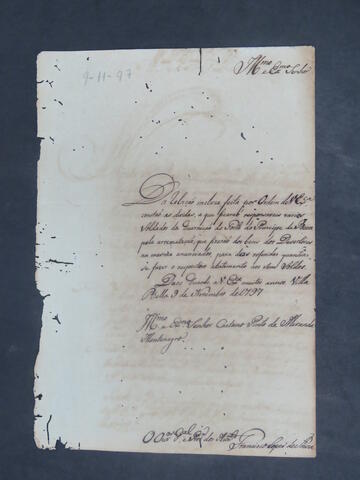 9-11-97
Illmo e Exmo Senhor
Da Relação incluza feita por Ordem de V. Exa
consta as dividas, a que ficarão responsaveis varios
Soldados da Guarnição do Forte do Principe da Beira
pela arrematação, que fizerão dos bens dos Dezertores
na mesma anunciados, para das referidas quantias
se fazer o respectivo abatimento nos seus Soldos.
Deos Guarde a V. Exa muitos annos Villa
Bella 9 de Novembro de 1797
Illmo e Exmo Senhor Caetano Pinto de Miranda
Montenegro.
Francisco